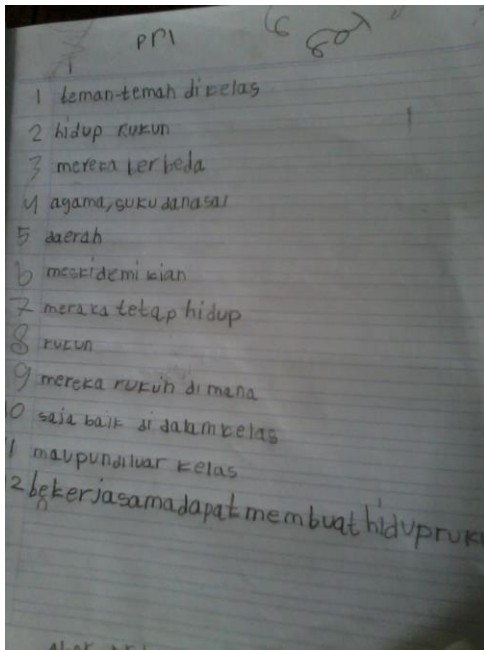 PPI
1 teman-teman dikelas
2 hidup rukun
3 mereka berbeda
4 agama, suku danasal
5 daerah
6 meskidemikian
7 meraka tetap hidup
8 rukun
9 mereka rukun dimana
10 saja baik didalamkelas
11 maupundiluar kelas
12 bekerjasamadapatmembuathiduprukü